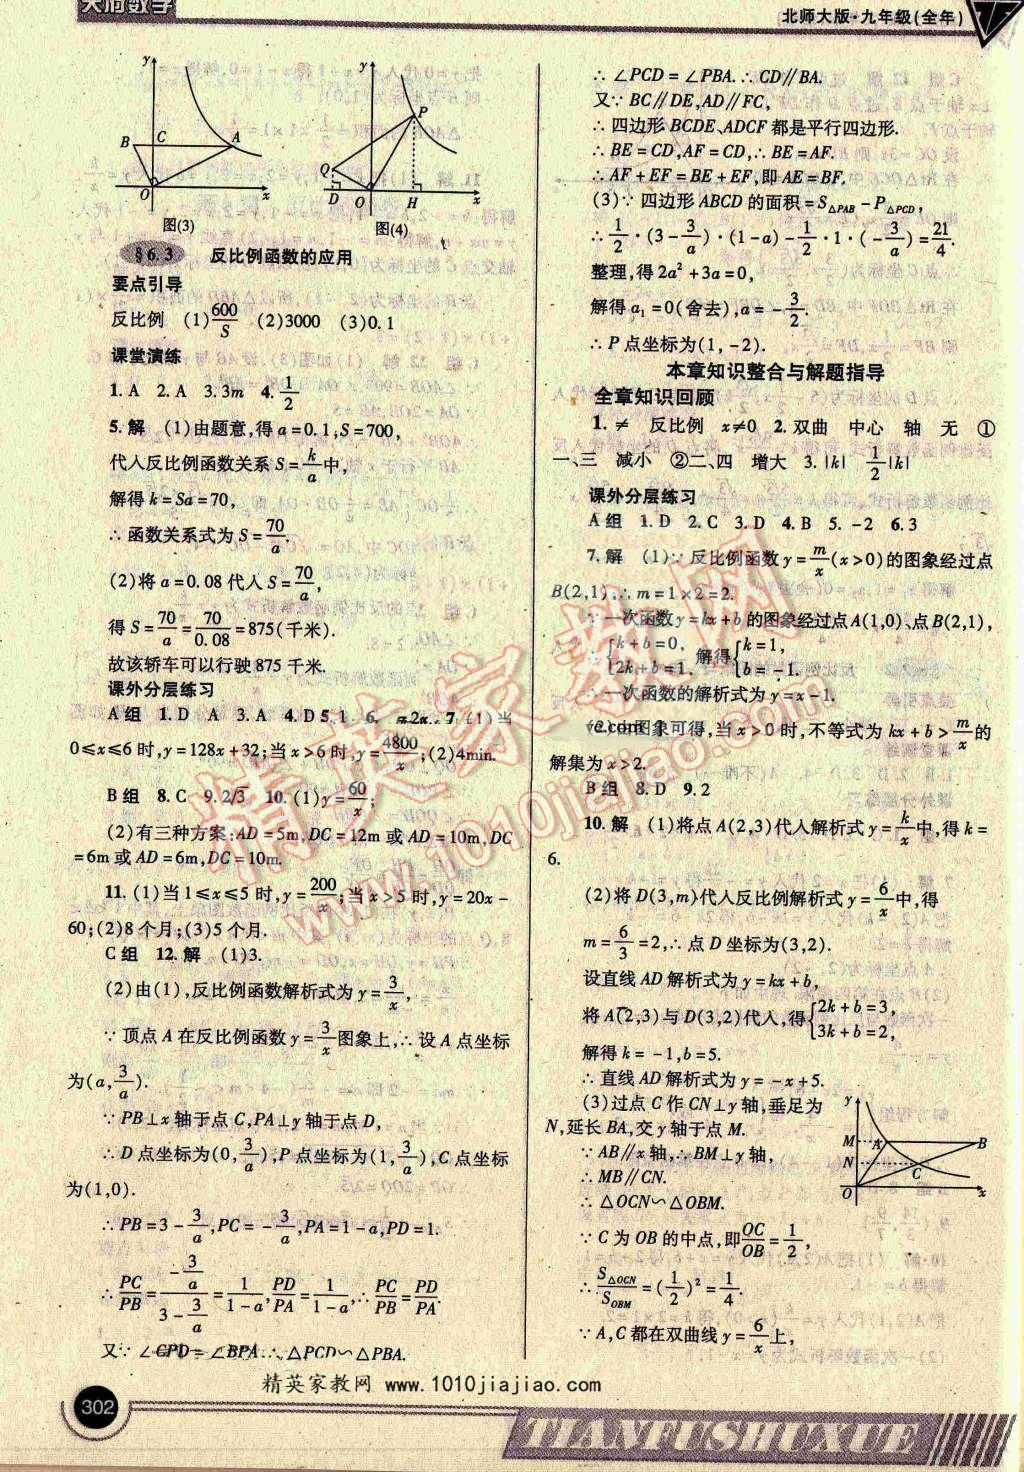 天府数学
北师大版·九年级(全年)
图(3) 图(4)
§6.3 反比例函数的应用
要点引导
反比例 (1)600/S (2)3000 (3)0.1
课堂演练
1.A 2.A 3.3m 4.1/2
5.解 (1)由题意,得a=0.1,S=700,
代入反比例函数关系S=k/a中,
解得k=Sa=70,
∴函数关系式为S=70/a.
(2)将a=0.08代入S=70/a,
得S=70/a=70/0.08=875(千米).
故该轿车可以行驶875千米.
课外分层练习
A组 1.D A 3.A 4.D 5.1 6. 7 (1)当
0≤x≤6时,y=128x+32;当x>6时,y=4800/x;(2)4min.
B组 8.C 9.2√3 10.(1)y=60/x;
(2)有三种方案:AD=5m,DC=12m或AD=10m,DC
=6m或AD=6m,DC=10m.
11.(1)当1≤x≤5时,y=200/x;当x>5时,y=20x-
60;(2)8个月;(3)5个月.
C组 12.解 (1)3.
(2)由(1),反比例函数解析式为y=3/x,
∵顶点A在反比例函数y=3/x图象上,∴设A点坐标
为(a,3/a).
∵PB⊥x轴于点C,PA⊥y轴于点D,
∴D点坐标为(0,3/a),P点坐标为(1,3/a),C点坐标
为(1,0).
∴PB=3-3/a,PC=-3/a,PA=1-a,PD=1.
∴PC/PB=(-3/a)/(3-3/a)=1/(1-a),PD/PA=1/(1-a),∴PC/PB=PD/PA.
又∵∠CPD=∠BPA∴△PCD∽△PBA.
∴∠PCD=∠PBA.∴CD∥BA.
又∵BC∥DE,AD∥FC,
∴四边形BCDE、ADCF都是平行四边形.
∴BE=CD,AF=CD,∴BE=AF.
∴AF+EF=BE+EF,即AE=BF.
(3)∵四边形ABCD的面积=S△PAB-P△PCD,
∴1/2·(3-3/a)·(1-a)-1/2·1·(-3/a)=21/4.
整理,得2a²+3a=0,
解得a₁=0(舍去),a=-3/2.
∴P点坐标为(1,-2).
本章知识整合与解题指导
全章知识回顾
1.≠ 反比例 x≠0 2.双曲 中心 轴 无 ①
一、三 减小 ②二、四 增大 3.|k| 1/2|k|
课外分层练习
A组 1.D 2.C 3.D 4.B 5.-2 6.3
7.解 (1)∵反比例函数y=m/x(x>0)的图象经过点
B(2,1),∴m=1×2=2.
∵一次函数y=kx+b的图象经过点A(1,0)、点B(2,1),
∴{k+b=0, 2k+b=1. 解得{k=1, b=-1.
∴一次函数的解析式为y=x-1.
图象可得,当x>0时,不等式为kx+b>m/x的
解集为x>2.
B组 8.D 9.2
10.解 (1)将点A(2,3)代入解析式y=k/x中,得k=
6.
(2)将D(3,m)代入反比例解析式y=6/x中,得
m=6/3=2,∴点D坐标为(3,2).
设直线AD解析式为y=kx+b,
将A(2,3)与D(3,2)代入,得{2k+b=3, 3k+b=2.
解得k=-1,b=5.
∴直线AD解析式为y=-x+5.
(3)过点C作CN⊥y轴,垂足为
N,延长BA,交y轴于点M.
∵AB∥x轴,∴BM⊥y轴,
∴MB∥CN.
∴△OCN∽△OBM.
∵C为OB的中点,即OC/OB=1/2,
∴S△OCN/SOBM=(1/2)²=1/4.
∵A,C都在双曲线y=6/x上,
精英家教网
www.1010jiajiao.com
精英家教网 www.1010jiajiao.com
302
TIANFUSHUXUE